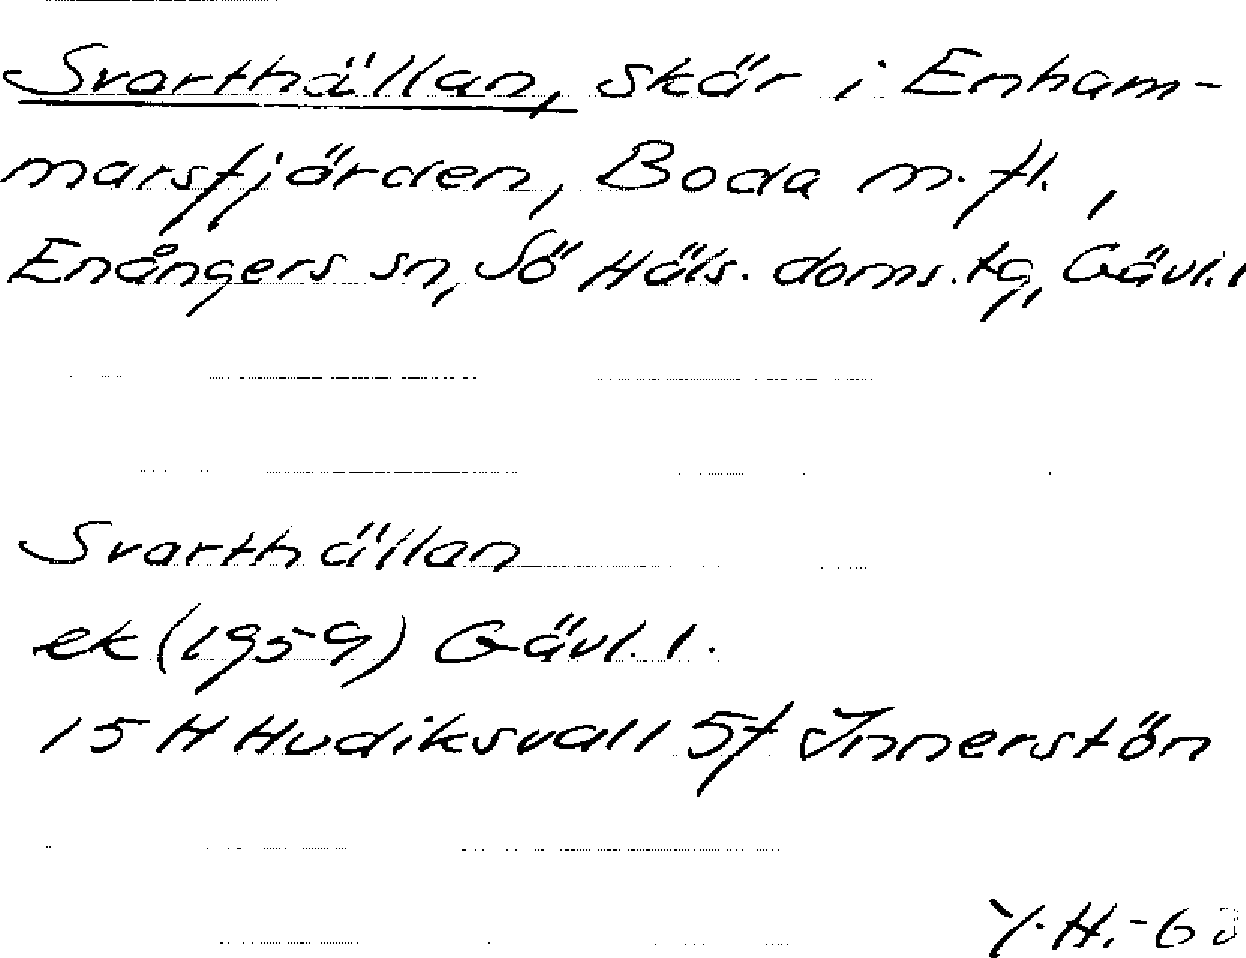 Svarthällan, skär i Enham-
marsfjärden, Boda m.fl.,
Enångers sn, Sö Häls. doms. tg, Gävl. l
Svarthällan
ek (1959) Gävl. l.
15 H Hudiksvall 5f Innerstön
Y.H.-63